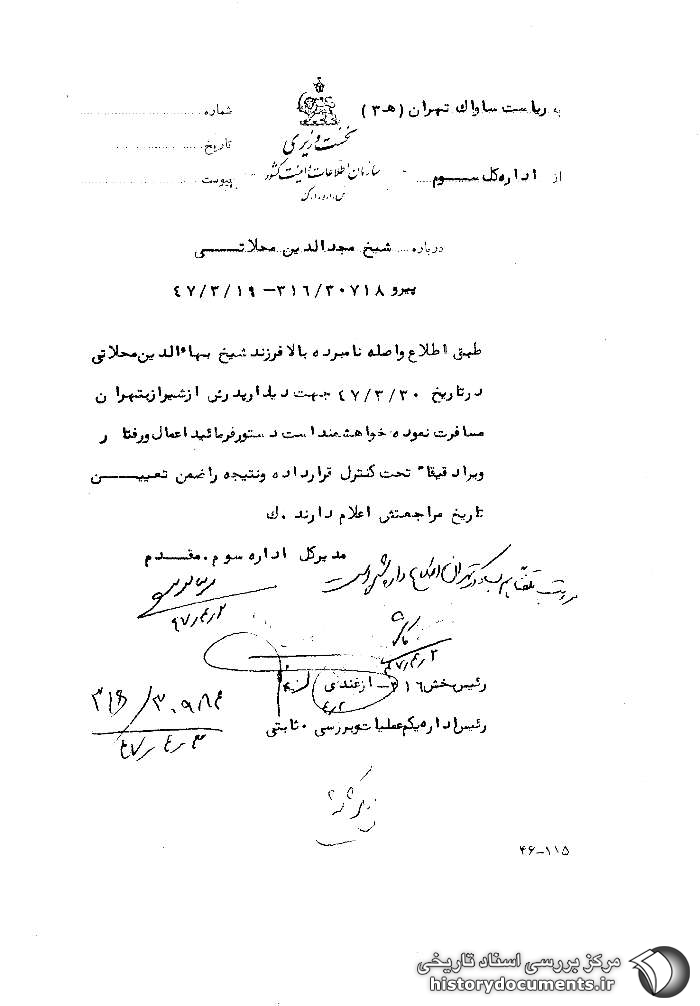 به ریاست ساواک تهران (هـ ۳)
شماره
نخست وزیری
تاریخ
از اداره کل سوم
سازمان اطلاعات و امنیت کشور
پیوست
س.ا.و.ا.ک
درباره شیخ مجدالدین محلاتی
پیرو ۳۱۶/۳۰۷۱۸ - ۴۷/۳/۱۹
طبق اطلاع واصله نامبرده بالا فرزند شیخ بهاءالدین محلاتی
در تاریخ ۴۷/۳/۳۰ جهت دیدار پدرش از شیراز بتهران
مسافرت نموده خواهشمند است دستور فرمائید اعمال و رفتار
ویرا دقیقاً تحت کنترل قرار داده و نتیجه را ضمن تعیین
تاریخ مراجعتش اعلام دارند .ک
مدیرکل اداره سوم . مقدم
۴۷/۴/۲
۴۷/۴/۲
رئیس بخش ۳۱۶ - ازغندی
۴/۲
رئیس اداره یکم عملیات و بررسی . ثابتی
۴۷/۴/۳
۴۶-۱۱۵
مرکز بررسی اسناد تاریخی
historydocuments.ir